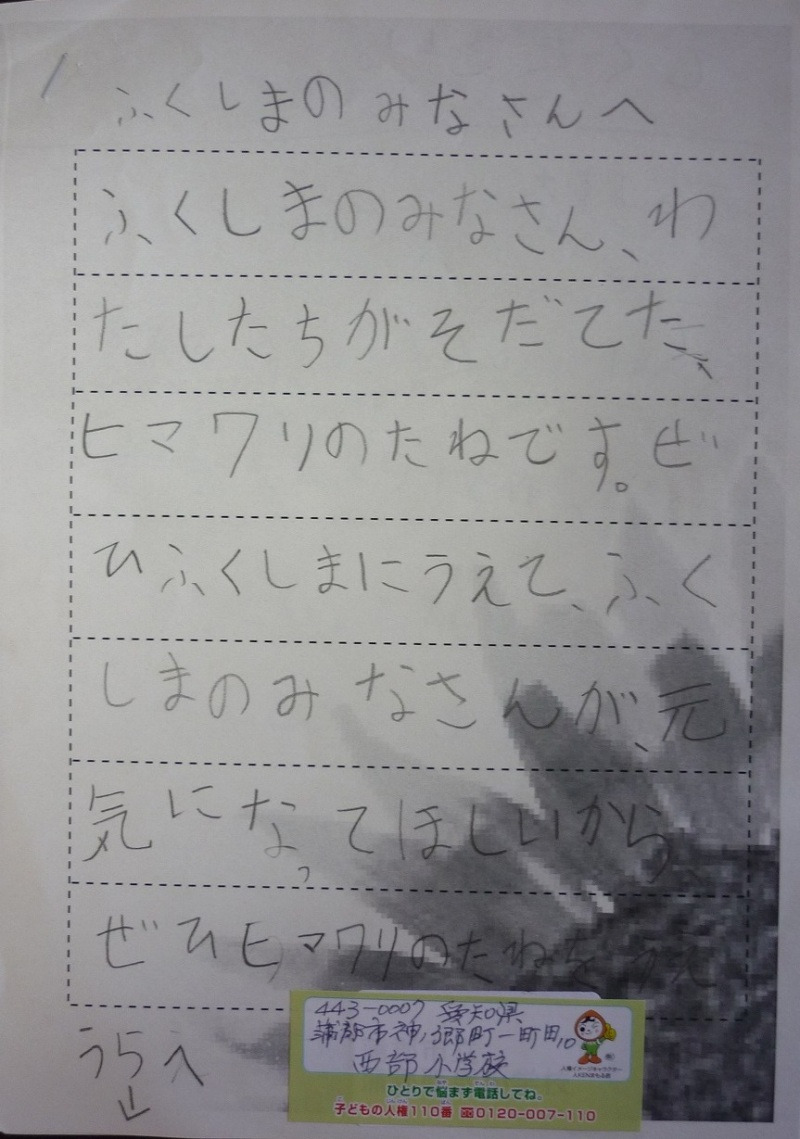 ふくしまのみなさんへ
ふくしまのみなさん、わ
たしたちがそだてた、
ヒマワリのたねです。ぜ
ひふくしまにうえて、ふく
しまのみなさんが、元
気になってほしいから、
ぜひヒマワリのたねをうえ
うらへ
↓
443-0007 愛知県
蒲郡市神ノ郷町一町田10
西部小学校
人権イメージキャラクター
人KENまもる君
ひとりで悩まず電話してね。
子どもの人権110番 0120-007-110